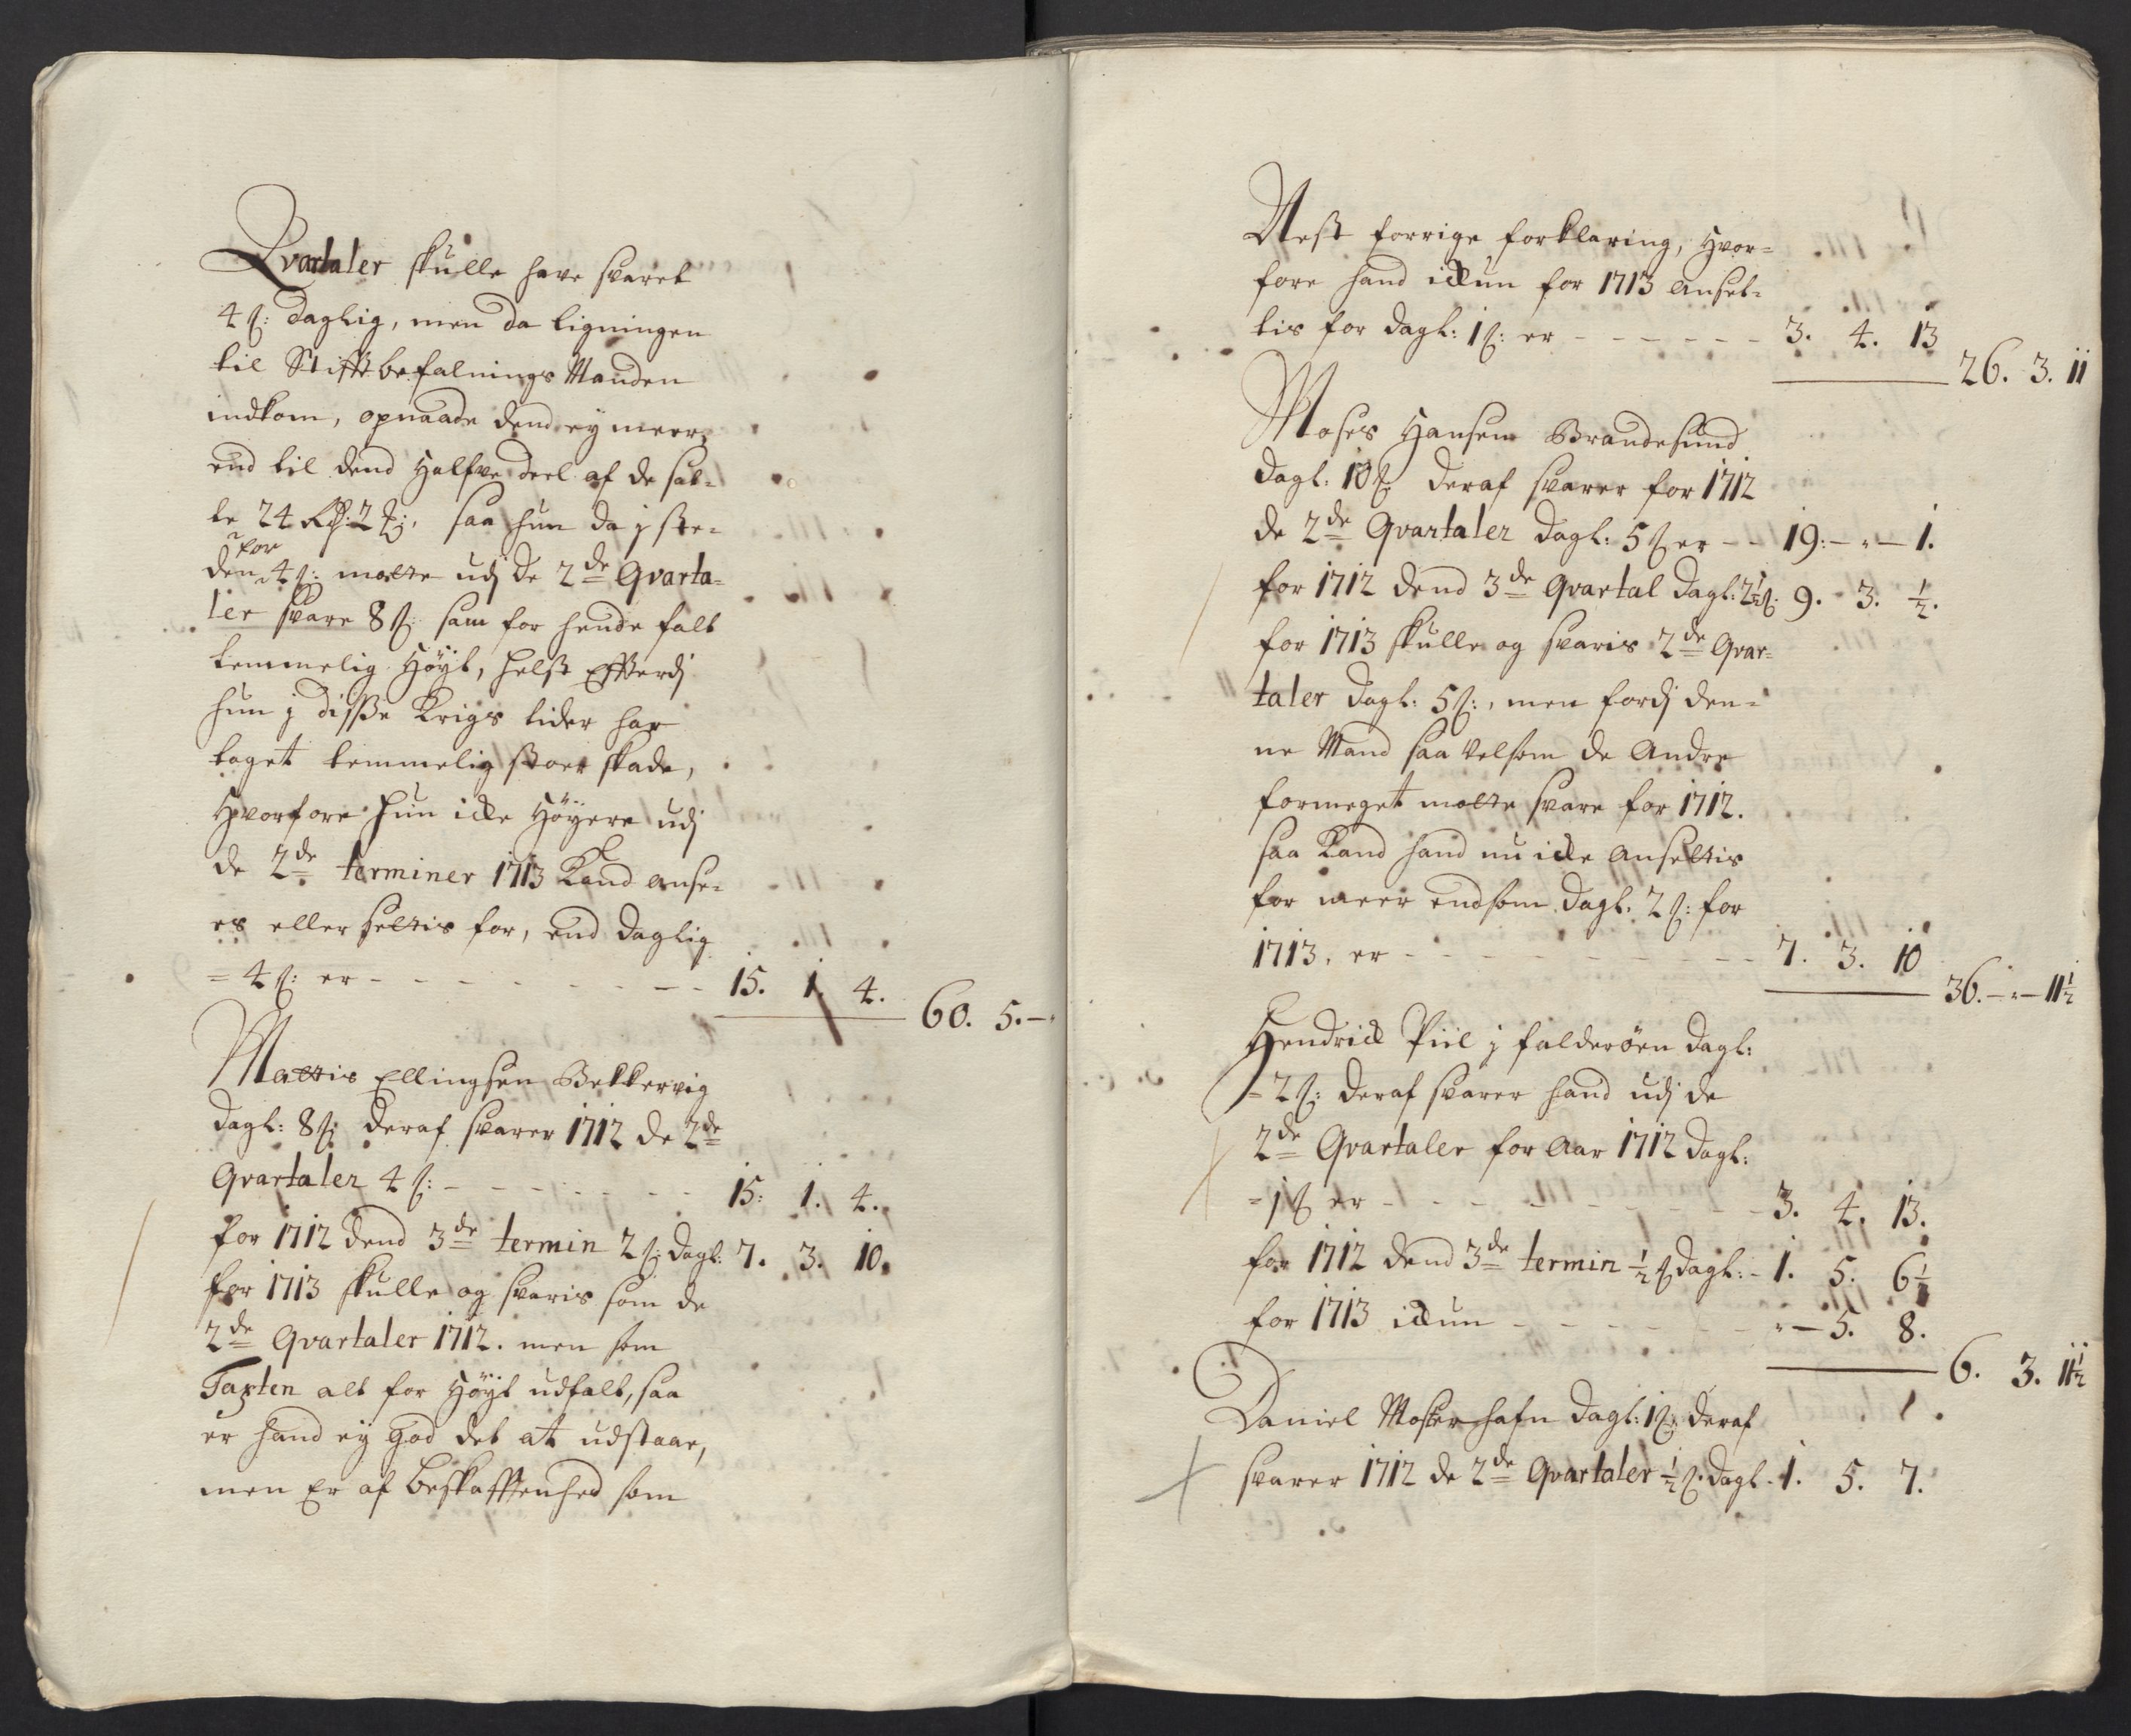 Qvartaler skulle have svaret
4 ß: daglig, men da ligningen
til Stiftbefalnings Manden
indkom, opnaade dend ey meer,
end til dend Halfve deel af de sat-
te 24 Rdr: 2 ß:, saa hun da j ste-
for
den 4 ß: motte udj de 2de Qvarta-
ler svare 8 ß: som for hende falt
temmelig Høyt, helst Efterdj
hun j disse Krigs tider har
taget temmelig stoer skade,
Hvorfore hun icke Høyere udj
de 2de terminer 1713 Kand anse-
es eller settis for, end daglig
= 4 ß: er - - - - - - - - - 15. 1. 4.
60. 5. -
Mattis Ellingsen Bekkervig
Dagl: 8 ß: deraf svarer 1712 de 2de
Qvartaler 4 ß: - - - - - - - 15: 1. 4.
for 1712 dend 3de termin 2 ß: Dagl: 7. 3. 10.
for 1713 skulle og svaris som de
2de Qvartaler 1712. men som
Taxten alt for Høyt udfalt, saa
er hand ey god det at udstaae,
men Er af beskaffenhed som
Nest forrige forklaring, Hvor-
fore hand ickun for 1713 anset-
tis for dagl: 1 ß: er - - - - - - 3. 4. 13
26. 3. 11
Moses Hansen Brandesund
Dagl: 10 ß: deraf svarer for 1712
de 2de Qvartaler Dagl: 5 ß er - - 19: - " - 1.
for 1712 dend 3de Qvartal Dagl: 2½ ß: 9. 3. ½.
for 1713 skulle og svaris 2de Qvar-
taler Dagl: 5 ß:, men fordj den-
ne Mand saa velsom de Andre
formeget motte svare for 1712.
saa Kand hand nu icke ansettis
for meer endsom Dagl: 2 ß: for
1713, er - - - - - - - - - - 7. 3. 10
36. - " - 11½
Hendrick Piil j Falderøen Dagl:
= 2 ß: deraf svarer hand udj de
2de Qvartaler for Aar 1712 Dagl:
= 1 ß er - - - - - - - - - - 3. 4. 13.
for 1712 dend 3de termin ½ ß Dagl: - 1. 5. 6½
for 1713 ickun - - - - - - - " - 5. 8.
6. 3. 11½
Daniel Mosterhafn Dagl: 1 ß: deraf
svarer 1712 de 2de Qvartaler ½ ß: Dagl. 1. 5. 7.